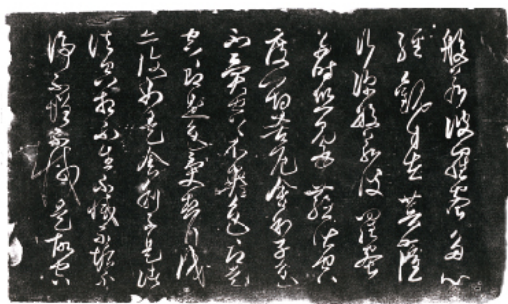 般若波羅蜜多心
經觀自在菩薩
行深般若波羅蜜
多時照見五蘊皆空
度一切苦厄舍利子色
不異空〻不異色〻即是
空〻即是色受想行識
亦復如是舍利子是諸
法空相不生不滅不垢不
淨不增不減是故空